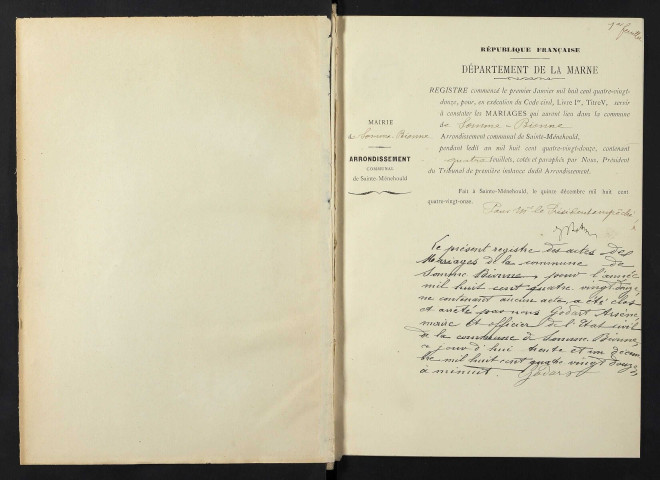 1er feuillet
RÉPUBLIQUE FRANÇAISE
DÉPARTEMENT DE LA MARNE
MAIRIE
de Somme-Bionne
ARRONDISSEMENT
COMMUNAL
de Sainte-Ménehould
REGISTRE commencé le premier Janvier mil huit cent quatre-vingt-
douze, pour, en exécution du Code civil, Livre Ier, Titre V, servir
à constater les MARIAGES qui auront lieu dans la commune
de Somme-Bionne
Arrondissement communal de Sainte-Ménehould,
pendant ledit an mil huit cent quatre-vingt-douze, contenant
quatre feuillets, cotés et paraphés par Nous, Président
du Tribunal de première instance dudit Arrondissement.
Fait à Sainte-Ménehould, le quinze décembre mil huit cent
quatre-vingt-onze.
Pour Mr le Président empêché
Le présent registre des actes des
Mariages de la commune de
Somme Bionne, pour l'année
mil huit cent quatre vingt douze
ne contenant aucun acte, a été clos
et arrêté par nous Godart Arsène,
maire et officier de l'état civil
de la commune de Somme Bionne,
ce jour d'hui trente et un décem
bre mil huit cent quatre vingt douze,
à minuit Godart